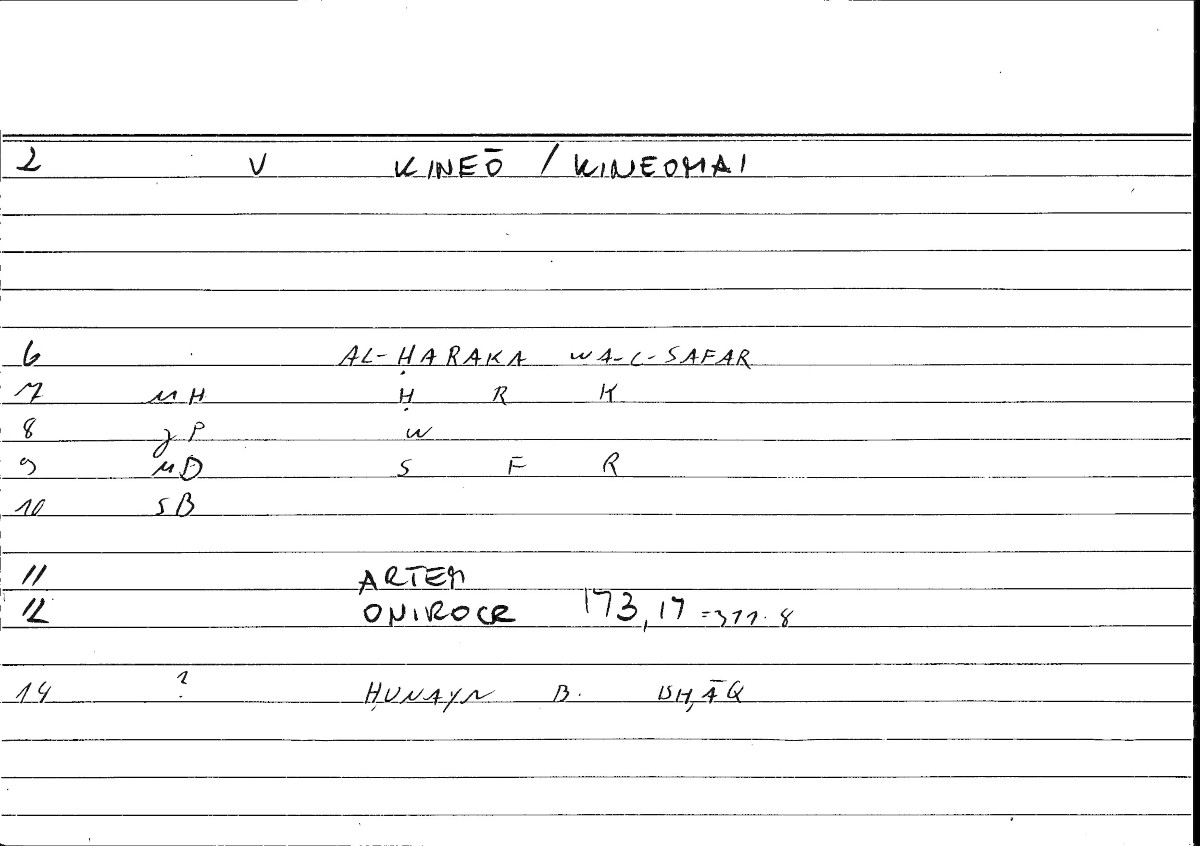 2 V KINEŌ / KINEOMAI
6 AL-ḤARAKA WA-L-SAFAR
7 MH Ḥ R K
8 gP W
9 MD S F R
10 SB
11 ARTEM
12 ONIROCR 173,17 =311.8
14 ? ḤUNAYN B. ISḤĀQ